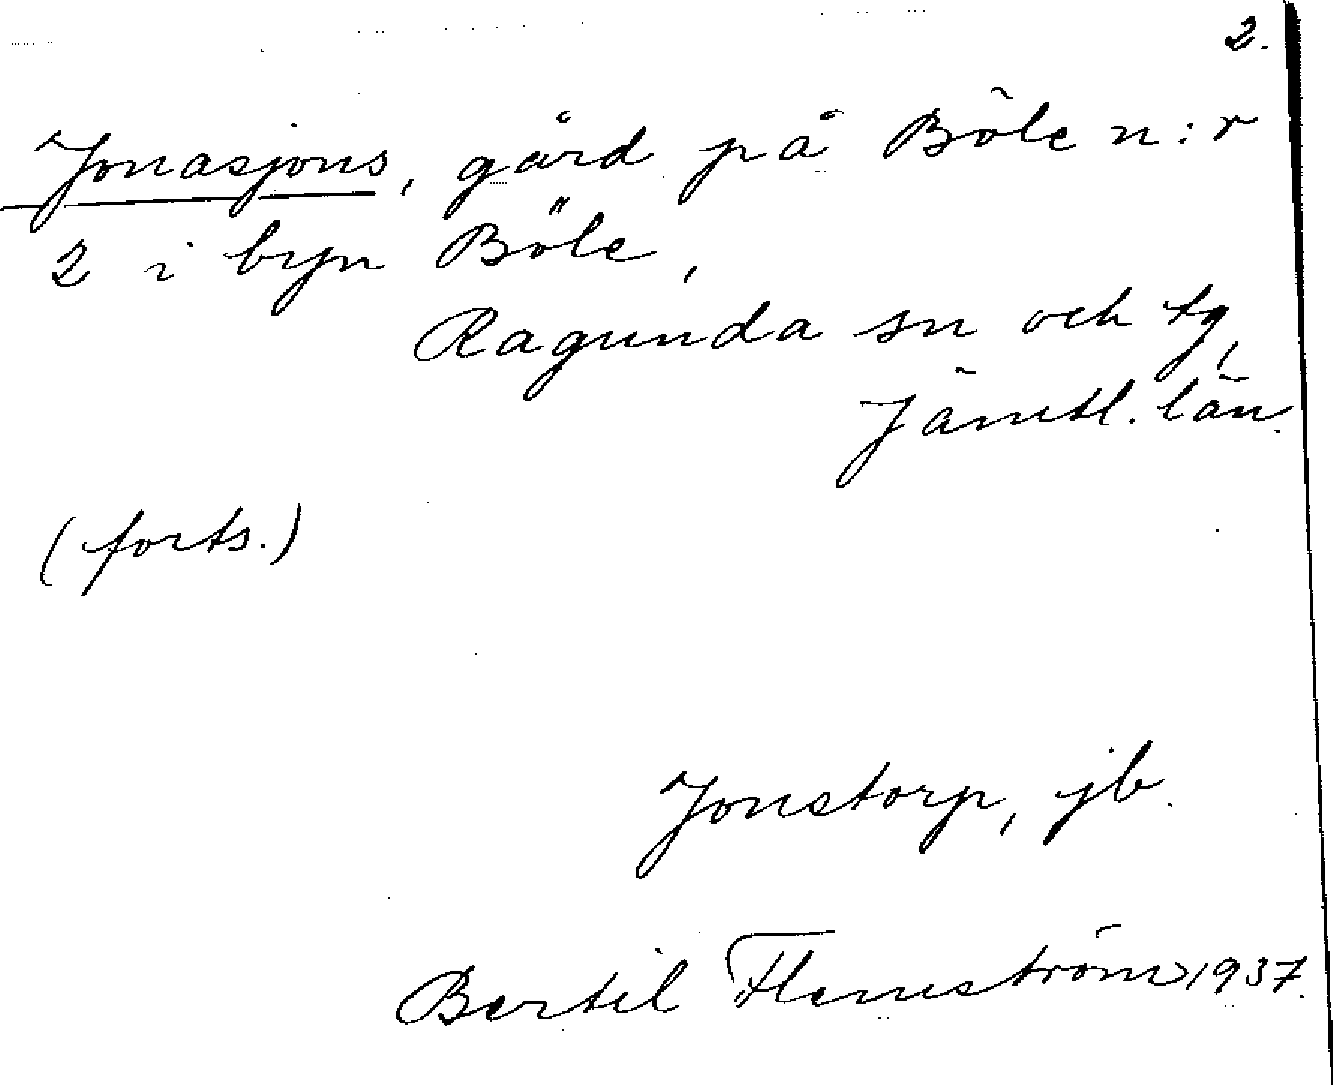 2.
Jonasjons, gård på Böle n:r
2 i byn Böle,
Ragunda sn och tg,
Jämtl. län.
(forts.)
Jonstorp, jb.
Bertil Flemström 1937.